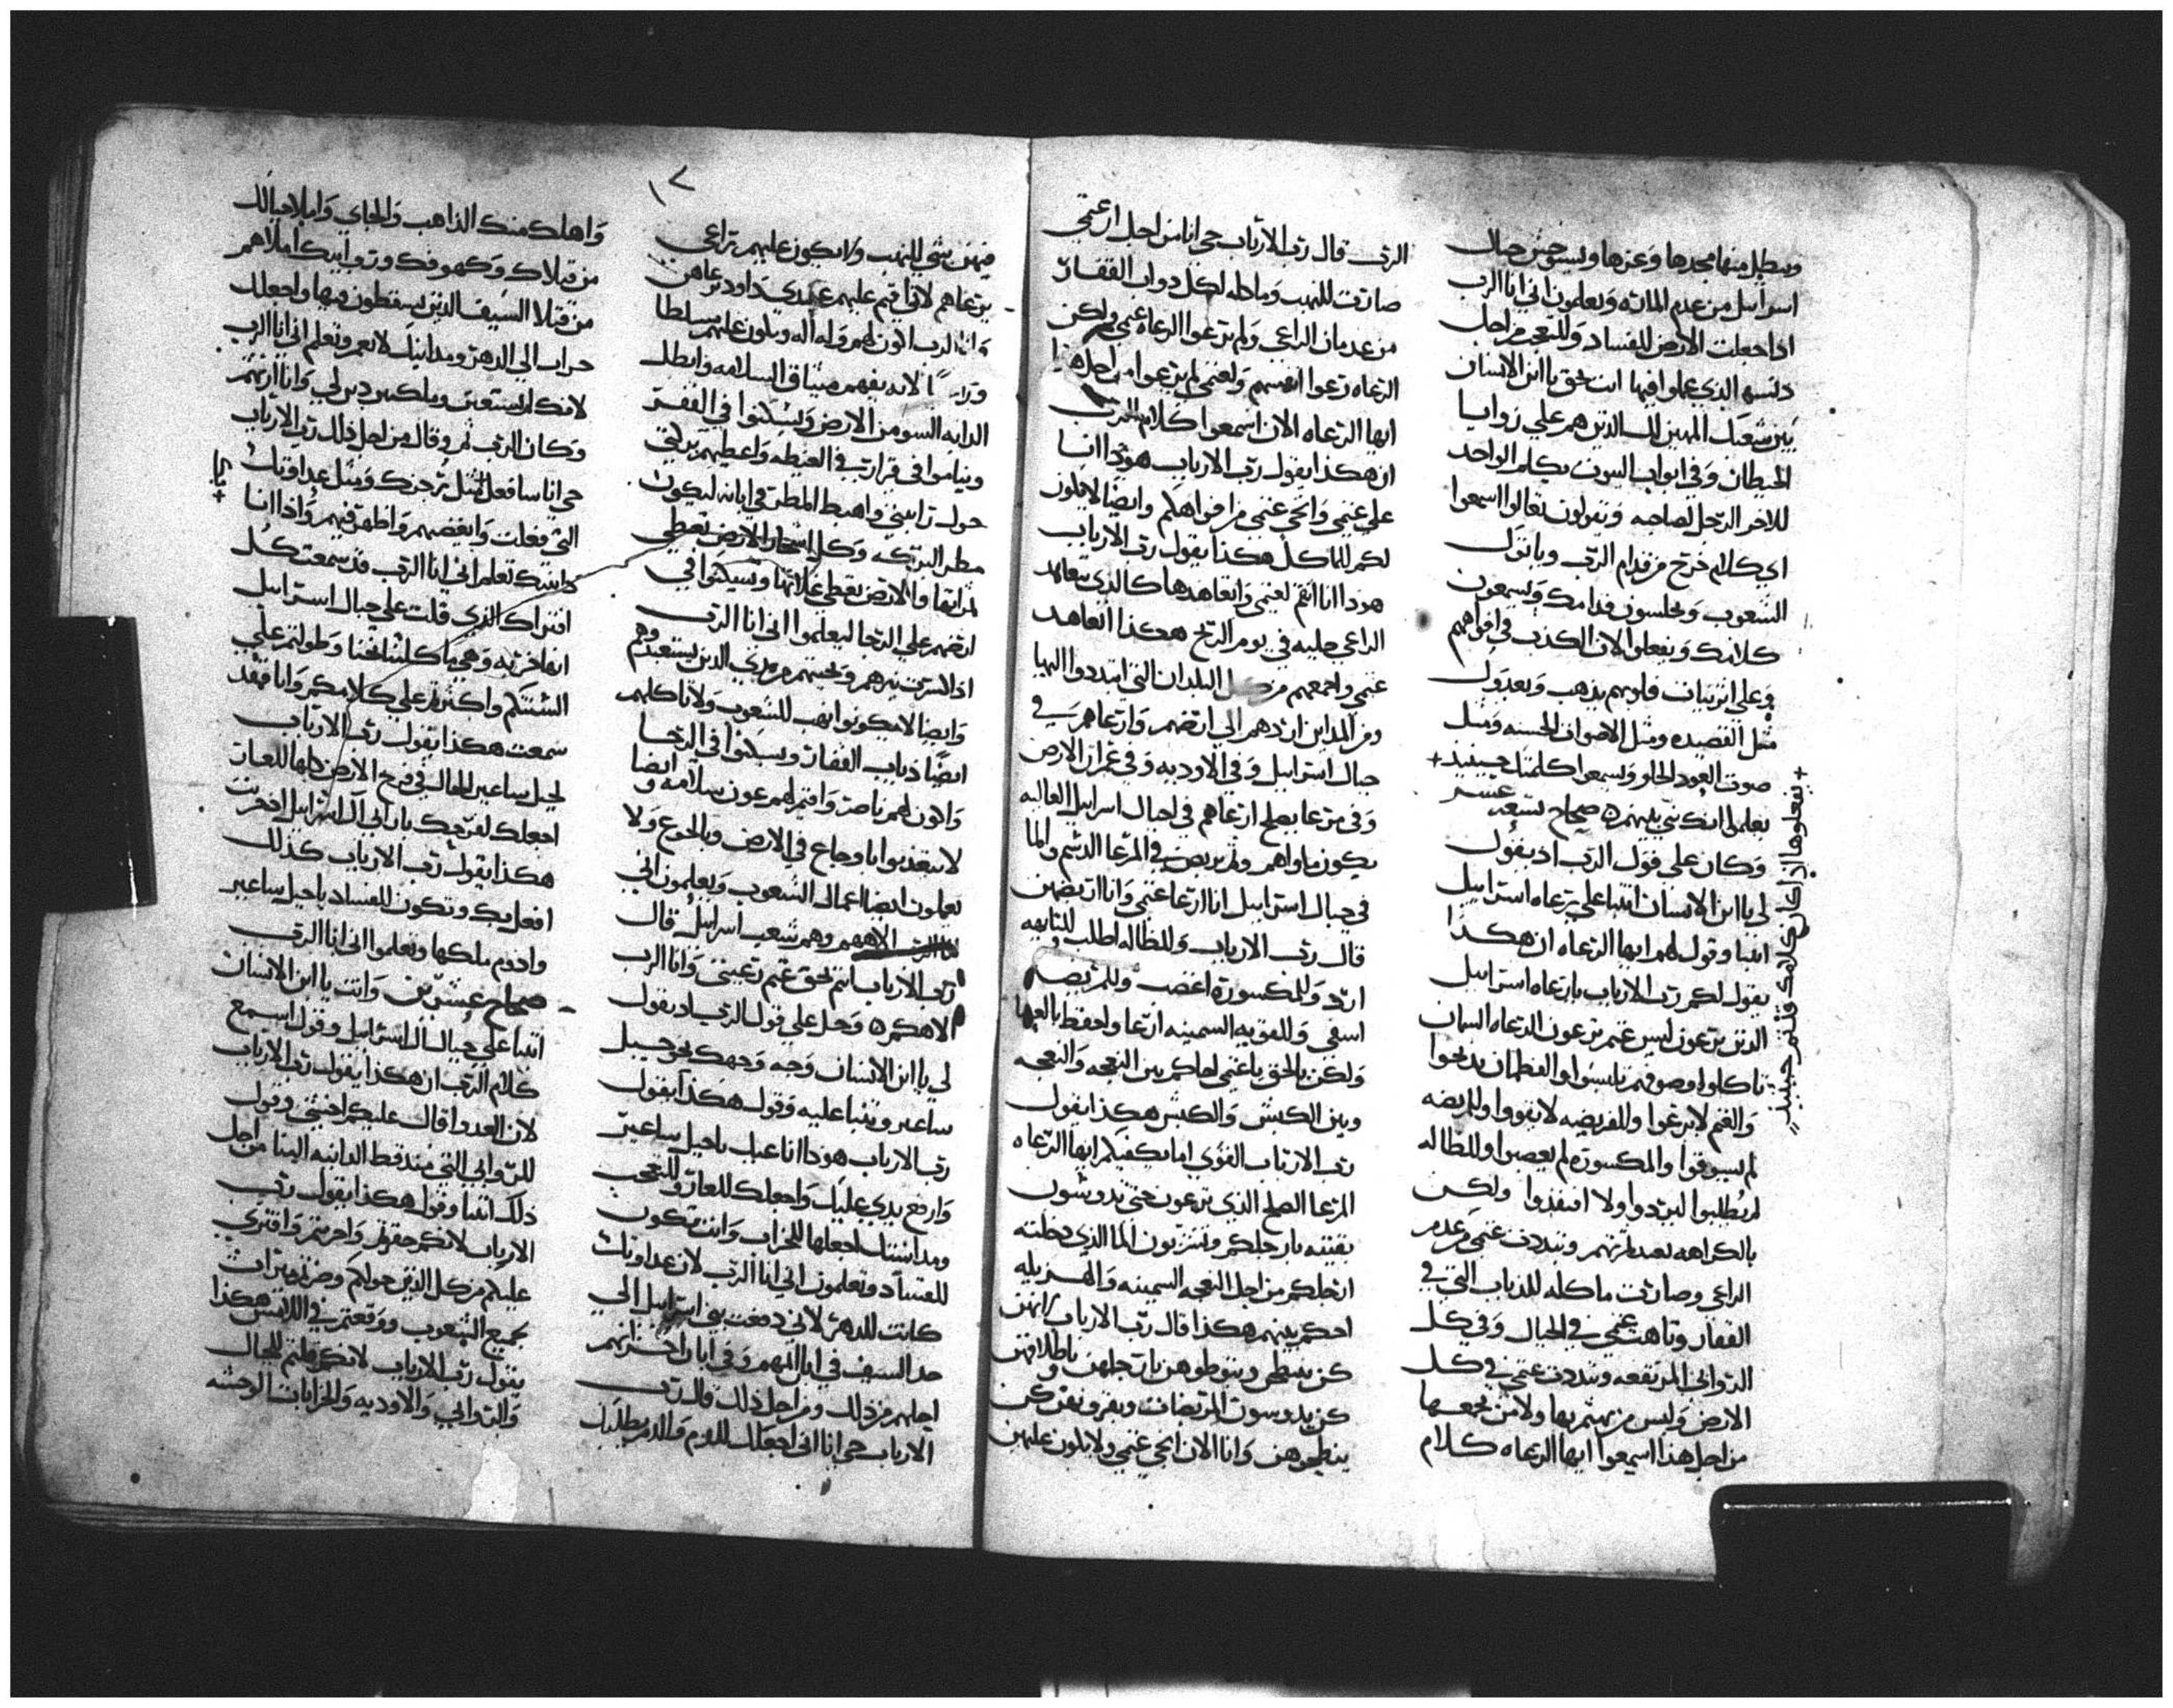 ويبطل منها مجدها وعزها ويستوحش جبال
اسراييل من عدم الماره ويعلمون اني انا الرب
اذا جعلت الارض للفساد وللتعجب من اجل
دنسهم الذي عملوا فيها انت بحق يا ابن الانسان
بنين شعبك المهينين لك الذين هم علي زوايا
الحيطان وفي ابواب البيوت يكلم الواحد
للاخر الرجل لصاحبه ويقولون تعالوا اسمعوا
اي كلام خرج من قدام الرب وياتون
الشعوب ويجلسون قدامك ويسمعون
كلامك ويفعلوا لان الكذب في افواههم
وعلي اثر نيات قلوبهم يذهب ويعدون
مثل القصيده ومثل الاصوات الحسنه ومثل
صوت العود الحلو ويسمعوا كلمتك حينيذ +
يعلموا انك نبي بينهم ه صحاح تسعه عشر
وكان علي قول الرب اذ يقول
لي يا ابن الانسان اتنبا علي رعاه استراييل
اتنبا وقول لهم ايها الرعاه ان هكذا
يقول لكم رب الارباب يا رعاه استراييل
الذين يرعون ليس غنم يرعون الرعاه السمان
تاكلوا وصوفهم تلبسوا والفطمان يذبحوا
والغنم لا يرعوا وللمريضه لا تقووا وللمريضه
لم يسوقوا والمكسوره لم يعصبوا وللظاله
لم يطلبوا ليردوا ولا استفذوا ولكن
بالكراهه تعبدتموهم وتبددت غنمي من عدم
الراعي وصارت ماكله للدياب التي في
القفار وتاهت غنمي في الجبال وفي كل
الروابي المرتفعه وتبددت غنمي في كل
الارض وليس من يهتم بها ولا من يجمعها
من اجل هذا اسمعوا ايها الرعاه كلام
+ يفعلوها اذا كان كلامك قلتم حينيذ
الرب قال رب الارباب حي انا من اجل ان غنمي
صارت للنهب وماكله لكل دواب القفار
من عدمان الراعي ولم يرعوا الرعاه غنمي ولكن
الرعاه رعوا انفسهم ولغنمي لم يرعوا من اجل هذا
ايها الرعاه الان اسمعوا كلام الرب
ان هكذا يقول رب الارباب هوذا انا
علي غنمي وانجي غنمي من افواهكم وايضا لا يكون
لكم للماكل هكذا يقول رب الارباب
هوذا انا انقم لغنمي واتعاهدها كالذي يتعاهد
الراعي جليبه في يوم الريح هكذا اتعاهد
غنمي واجمعهم من كل البلدان التي اتبددوا اليها
ومن المداين اردهم الي ارضهم وارعاهم في
جبال استراييل وفي الاوديه وفي عمران الارض
وفي مرعا يصلح ارعاهم في اجبال اسراييل العاليه
يكون ماواهم وثم يربض في المرعا الدسم والما
في جبال استراييل انا ارعا غنمي وانا اربضهن
قال رب الارباب وللظاله اطلب وللتايهه
ارد وللمكسوره اعصب وللمريضه
اسقي وللقويه السمينه ارعا واحفظ بالعمى
ولكن بالحق يا غنمي احاكم بين النعجه والنعجه
وبين الكبش والكبش هكذا يقول
رب الارباب القوي اما يكفيكم ايها الرعاه
المرعا الصالح الذي ترعون حتي تدوشون
بقيته بارجلكم وتشربون الما الذي دحلته
ارجلكم من اجل النعجه السمينه والهزيله
احكم بينهم هكذا قال رب الارباب لانهن
كن ينطحن وبتوطوهن بارجلهن وباظلافهن
كن يدوسون المريضات وبقرونهن كن
ينطحوهن وانا الان انجي غنمي ولا يكون عليهن
١٧
فيهن شي للنهب ولا يكون عليهم راعي
يرعاهم لاني اقيم عليهم عبدي داود يرعاهن
وانا الرب اكون لهم وله اله ويكون عليهم مسلطا
لانه يفهم ميثاق السلامه وابطل
الدابه السو من الارض ويسكنوا في القفر
وينامون في قرارت في الغيطه واعطيهم بركتي
حول رابيتي واهبط المطر في ابانه ليكون
مطر البركه وكل اشجار الارض تعطي
ثمراتها والارض تعطي غلاتها ويسكنوا في
ارضهم علي الرجا ليعلموا اني انا الرب
اذا كسرت نيرهم ونجيتهم من يدي الذين يستعبدوهم
وايضا لا يكونوا نهب للشعوب ولا تاكلهم
ايضا دياب القفار ويسكنوا في الرجا
واكون لهم ناصر واقيم لهم عون سلامه وايضا
لا يتعذبوا باوجاع في الارض وبالجوع ولا
يعملون ايضا اعمال الشعوب ويعلمون اني
انا الرب الاههم وهم شعب اسراييل قال
رب الارباب انتم بحق غنم رعيتي وانا الرب
الاهكم ه وحل علي قول الرب اذ يقول
لي يا ابن الانسان وجه وجهك نحو جبل
ساعير وتنبا عليه وقول هكذا يقول
رب الارباب هوذا انا عليك يا جبل ساعير
وارفع يدي عليك واجعلك للعار وللتعجب
ومداينك اجعلها للخراب وانت تكون
للفساد وتعلمون اني انا الرب لان عداوتك
كانت للدهر لاني دفعت بني استراييل الي
حد السيف في ايام المهم وفي ايان اخزانهم
اجلهم من ذلك ومن اجل ذلك قال رب
الارباب حي انا اني اجعلك للدم والدم يطلبك
واهلك منك الذاهب والجاي واملا جبالك
من قتلاك وكهوفك وروابيك املاهم
من قتلا السيف الذين يسقطون فيها واجعلك
خراب الي الدهر ومداينك لا تعمر وتعلم اني انا الرب
لانك لم تستعين وملكهم دين لي وانا ارثهم
وكان الرب ثم وقال من اجل ذلك رب الارباب
حي انا سافعل مثل رجزك ومثل عداوتك
التي فعلت وابغضهم واظهر فيهم واذا انا
دنتك تعلم اني انا الرب قد سمعت كل
افتراك الذي قلت علي جبال استراييل
انها خربه وهي ماكلتنا نحنا وطولتم علي
السنتكم واكثرتم علي كلامكم وانا فقد
سمعت هكذا يقول رب الارباب
لجبل ساعير الحال في فرح الارض كلها للعار
اجعلك لفرحك بارابي آل استراييل اذ خربت
هكذا يقول رب الارباب كذلك
افعل بك وتكون للفساد يا جبل ساعير
وادوم ملكها وتعلموا اني انا الرب
صحاح عشرين وانت يا ابن الانسان
اتنبا علي جبال ال استراييل وقول اسمع
كلام الرب ان هكذا يقول رب الارباب
لان العدوا قال عليكم احنتي وقول
للروابي التي منذ قط الدانيه الينا من اجل
ذلك اتنبا وقول هكذا يقول رب
الارباب لانكم حقرتم واخربتم وافتري
عليكم من كل الذين حولكم وصرتم ميراث
جميع الشعوب ووقعتم في الالسن هكذا
يقول رب الارباب لانكم قلتم للجبال
والروابي والاوديه والخرابات الوحشه